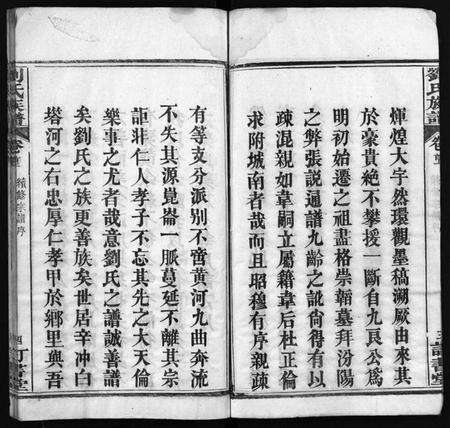 劉氏族譜
煇煌大宇然環觀墨稿溯厥由來其
於豪貴絕不攀援一斷自九良公爲
明初始遷之祖盡格崇韜墓拜汾陽
之弊張說通譜九齡之試尙得有以
疎混親如韋嗣立屬籍韋后杜正倫
求附城南者哉而且昭穆有序親疎
有等支分派別不啻黃河九曲奔流
不失其源崑崙一脈蔓延不離其宗
詎非仁人孝子不忘其先之大天倫
樂事之尤者哉意劉氏之譜誠善譜
矣劉氏之族更善族矣世居辛沖白
塔河之右忠厚仁孝甲於鄉里與吾
劉氏族譜
卷首